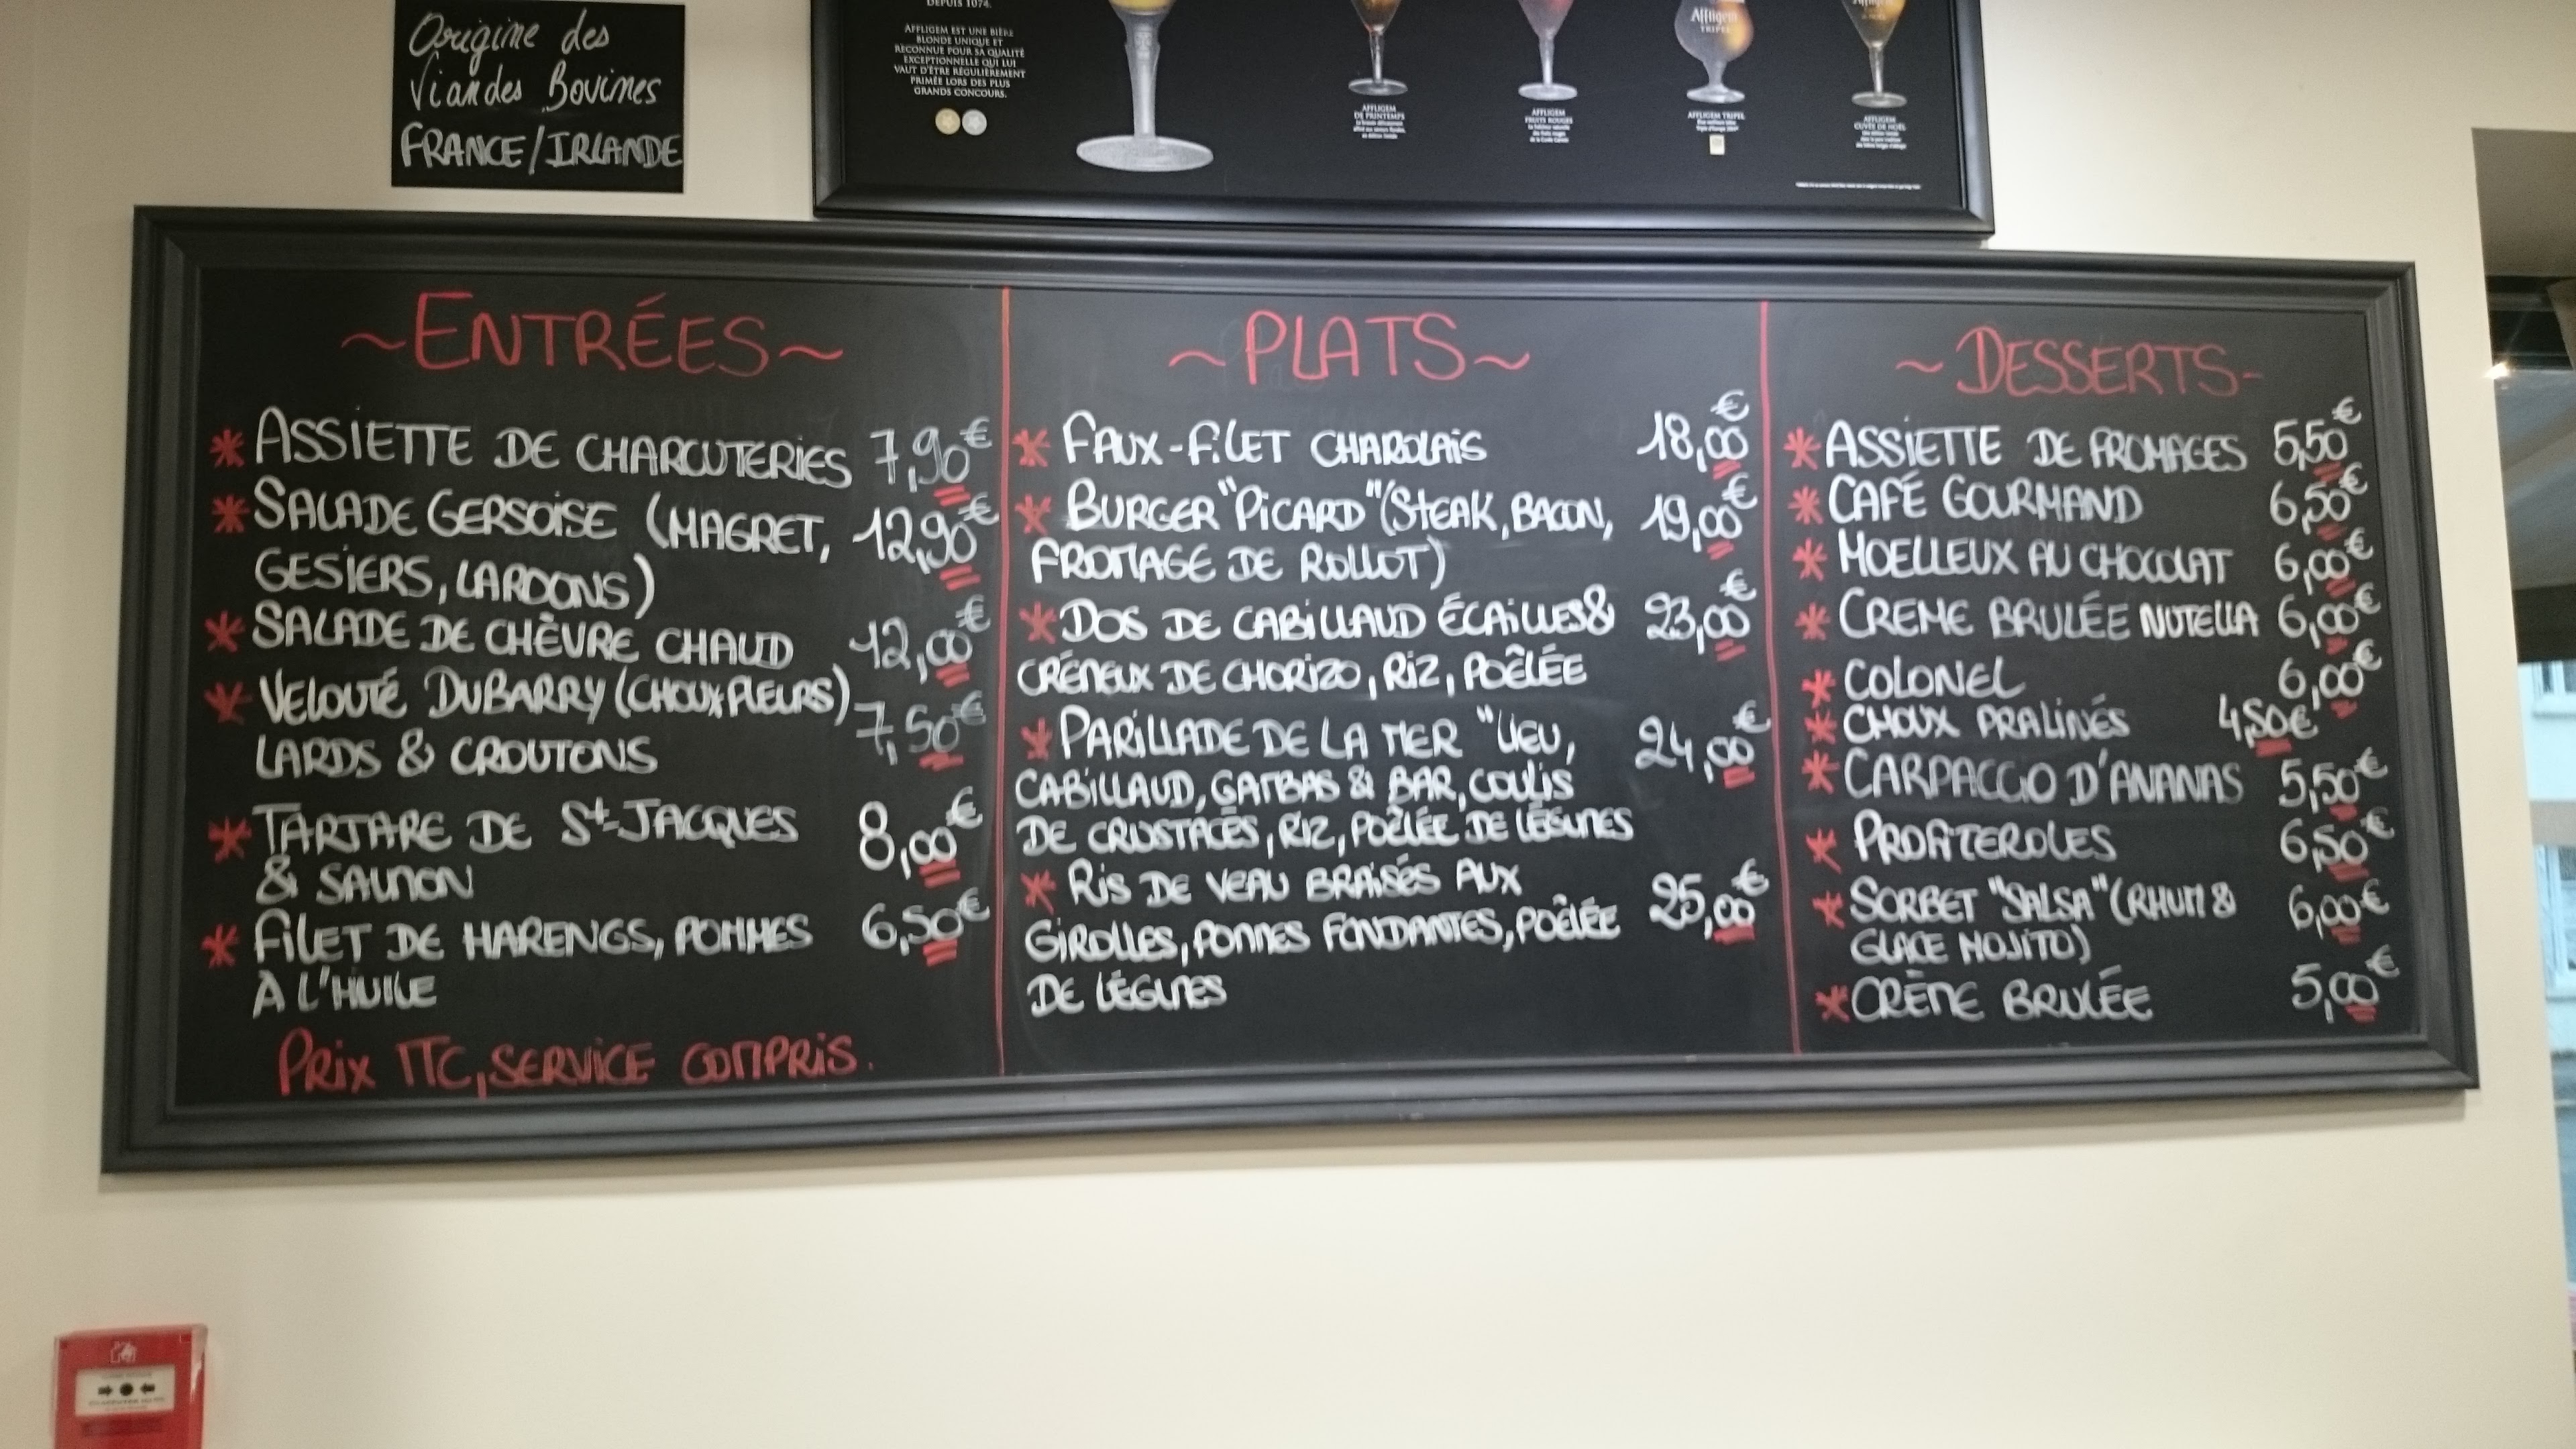 Origine des
Viandes Bovines
FRANCE/IRLANDE
DEPUIS 1074.
AFFLIGEM EST UNE BIÈRE
BLONDE UNIQUE ET
RECONNUE POUR SA QUALITÉ
EXCEPTIONNELLE QUI LUI
VAUT D'ÊTRE RÉGULIÈREMENT
PRIMÉE LORS DES PLUS
GRANDS CONCOURS.
AFFLIGEM
DE PRINTEMPS
AFFLIGEM
FRUITS ROUGES
Affligem
TRIPEL
AFFLIGEM TRIPEL
Affligem
AFFLIGEM
CUVÉE DE NOËL
~ENTRÉES~
* ASSIETTE DE CHARCUTERIES 7,90€
* SALADE GERSOISE (MAGRET, 12,90€
GESIERS, LARDONS)
* SALADE DE CHÈVRE CHAUD 12,00€
* VELOUTÉ DUBARRY (CHOUX FLEURS) 7,50€
LARDS & CROUTONS
* TARTARE DE St-JACQUES 8,00€
& SAUMON
* FILET DE HARENGS, POMMES 6,50€
À L'HUILE
PRIX TTC, SERVICE COMPRIS.
~PLATS~
* FAUX-FILET CHAROLAIS 18,00€
* BURGER "PICARD" (STEAK, BACON, 19,00€
FROMAGE DE ROLLOT)
* DOS DE CABILLAUD ÉCAILLES & 23,00€
CRÉMEUX DE CHORIZO, RIZ, POÊLÉE
* PARILLADE DE LA MER "LIEU, 24,00€
CABILLAUD, GAMBAS & BAR, COULIS
DE CRUSTACÉS, RIZ, POÊLÉE DE LÉGUMES
* RIS DE VEAU BRAISÉS AUX 25,00€
GIROLLES, POMMES FONDANTES, POÊLÉE
DE LÉGUMES
~DESSERTS-
* ASSIETTE DE FROMAGES 5,50€
* CAFÉ GOURMAND 6,50€
* MOELLEUX AU CHOCOLAT 6,00€
* CREME BRULÉE NUTELLA 6,00€
* COLONEL 6,00€
* CHOUX PRALINÉS 4,50€
* CARPACCIO D'ANANAS 5,50€
* PROFITEROLES 6,50€
* SORBET "SALSA" (RHUM & 6,00€
GLACE MOJITO)
* CRÈME BRULÉE 5,00€